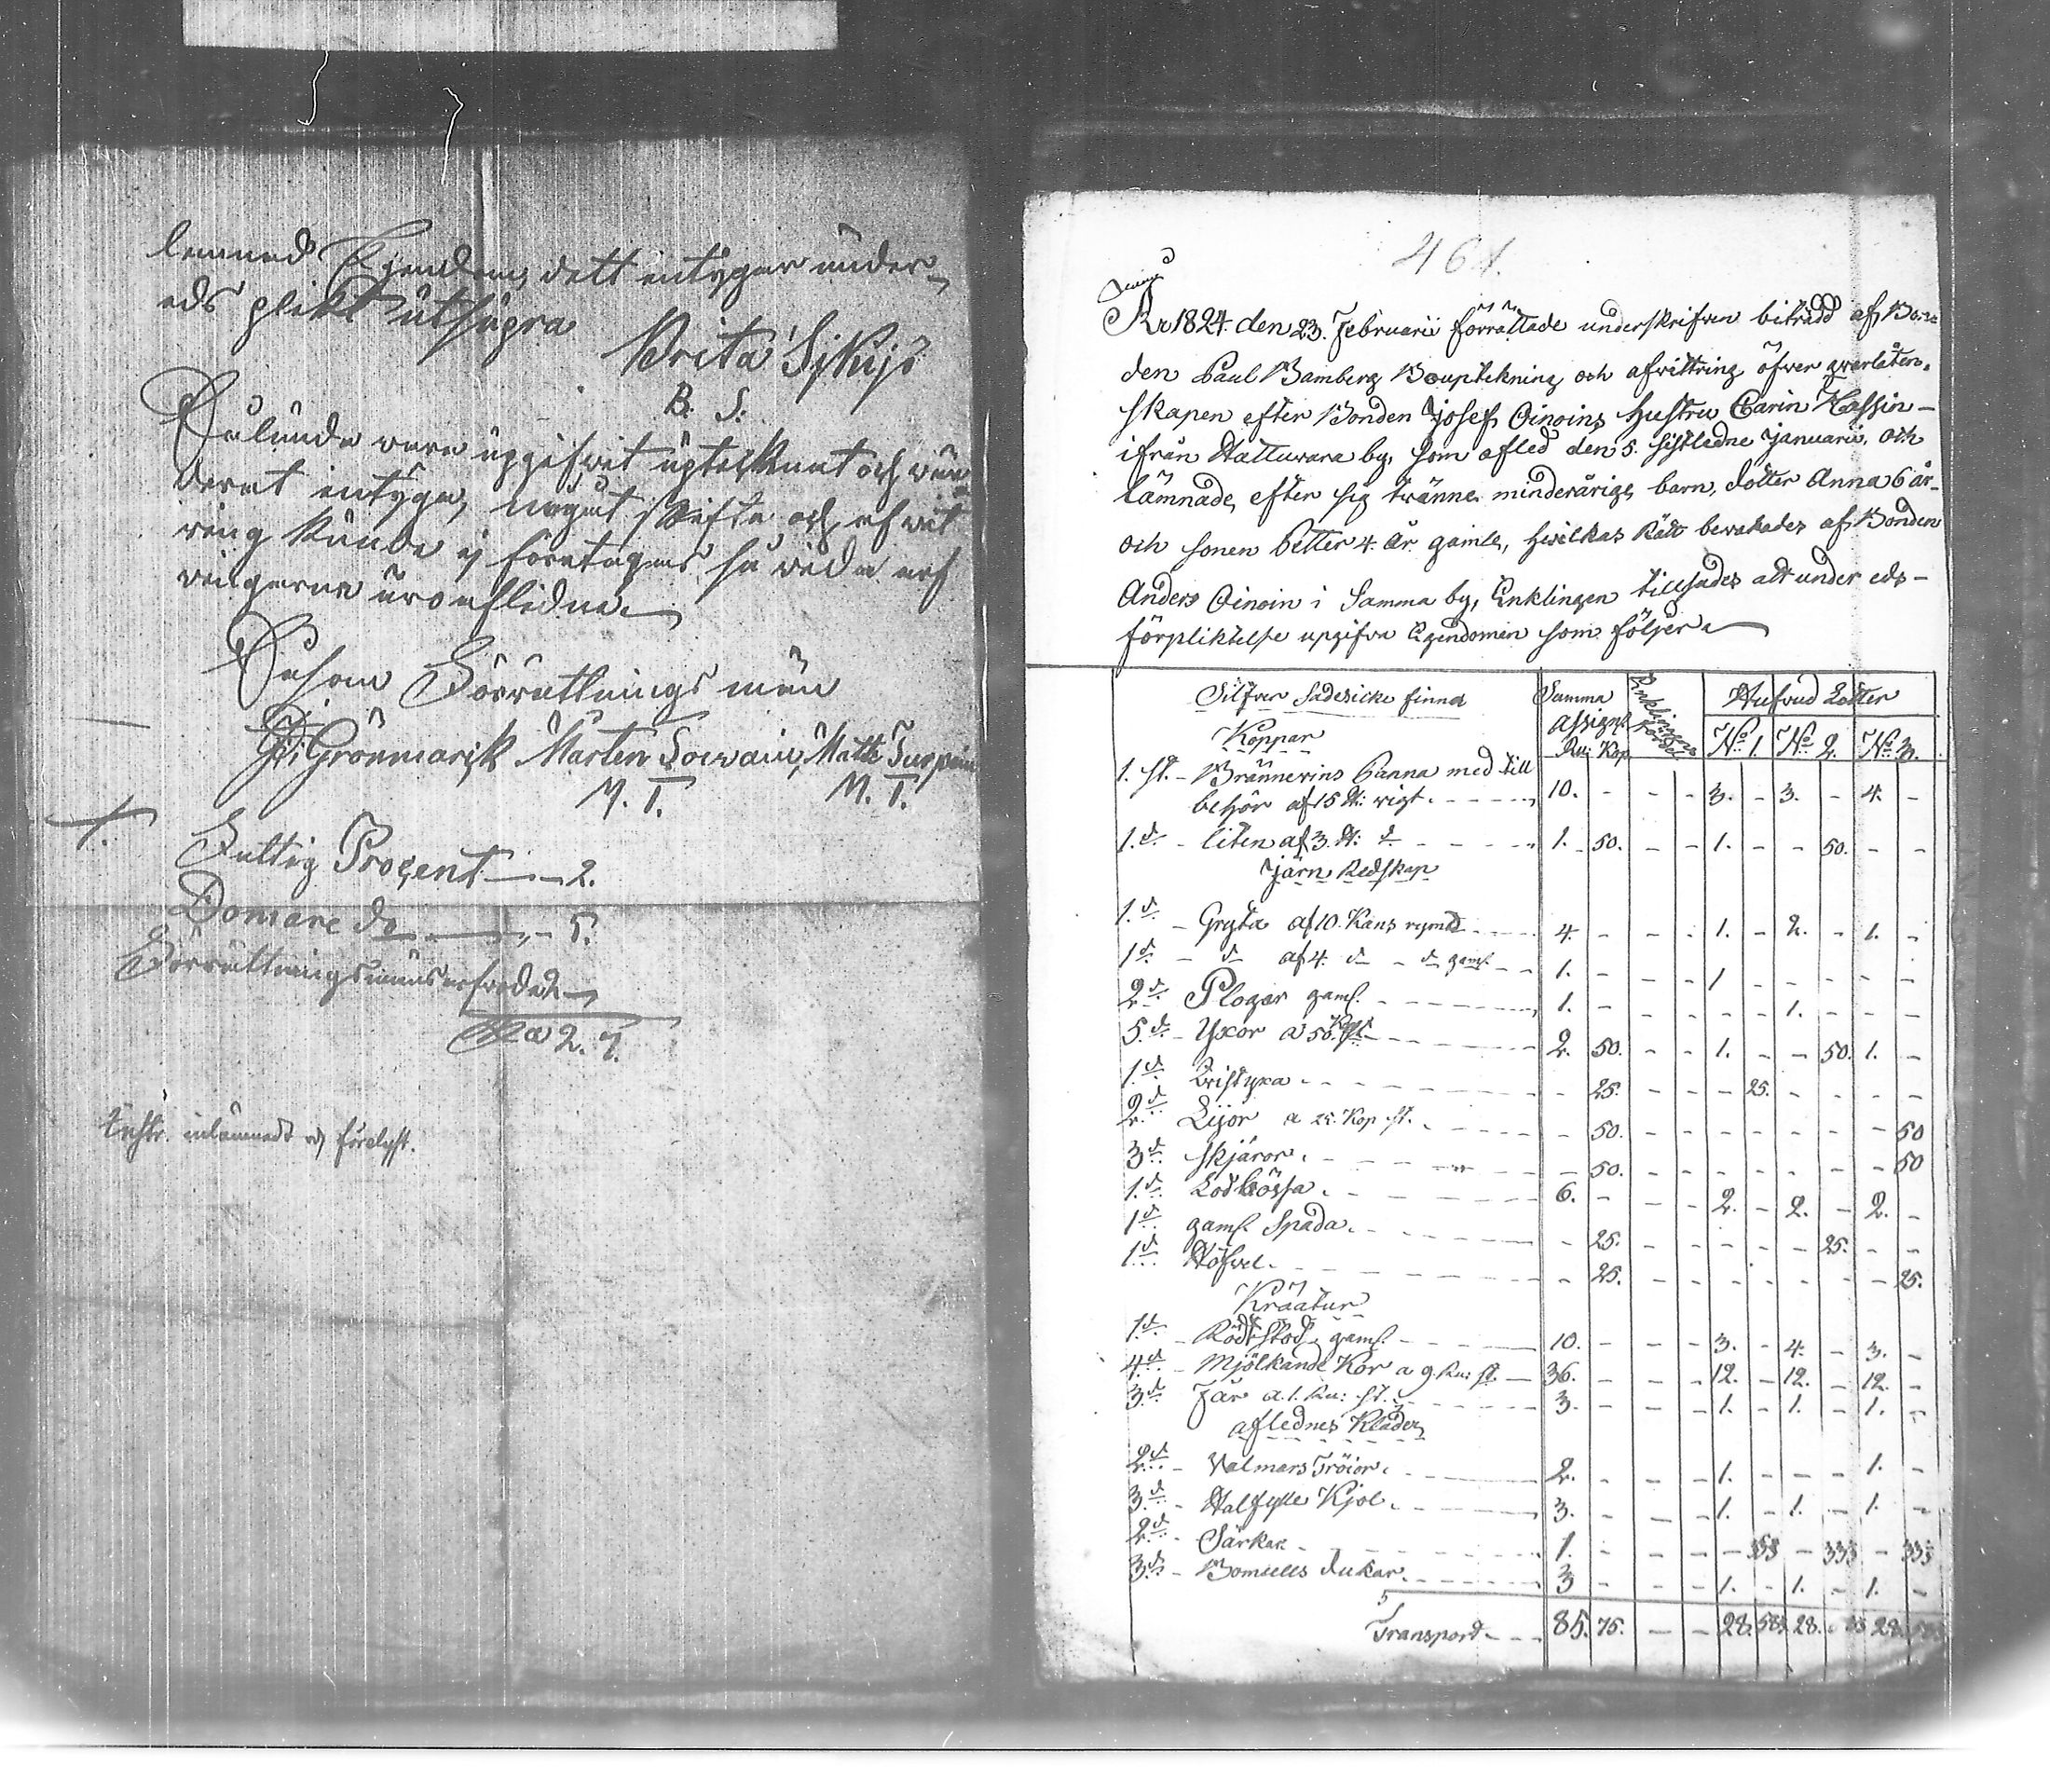 lemnad Egendom, dett intygar under
eds plikt utsupra
Brita Sykijö
B. S.
Sålunda vara uppgifvit uptecknat och vär-
derat intyga, någut skifte och afvit
ring kunde ej företagas, så vida arf
vingarna äro aflidne.
Såsom Förrättnings män
Grönmarck Mårten Mattz Turpain
M. T. M. T.
Fattig Procent — 2.
Domare do — 5.
Förrättningsmäns arfvode —
Ra 2. 7.
inlämnadt och föredl.
461.
År 1824. den 23. Februarii förrättade underskrifven biträdd af Bon
den Paul Bamberg Bouptekning och afvittring öfver qvarlåten-
skapen efter Bonden Josef Oinoins Hustru Carin Hassin-
ifrån Hattuvara by, som afled den 5. sistledne Januarii, och
lämnade efter sig tvänne minderårige barn, dotter Anna 6 år-
och sonen Petter 4. år gamla, hvilkas Rätt bevakades af Bonden
Anders Oinoin i Samma by, Enklingen tillsades alt under eds-
förpliktelse upgifva Egendomen som följer.
Silfver Sadesicke finna Samma Enklingens fördel Hufvud Lotter
Koppar Assignt. Ru: Kop No 1. No 2. No 3.
1. st. - Brännevins Panna med till
behör af 15 ℔: vigt. 10. - - - 3. - 3. - 4. -
1. d. - liten af 3. ℔: d. 1. 50. - - 1. - - 50. - -
Järn Redskap
1. d. - Gryta af 10. Kans rymd 4. - - - 1. - 2. - 1. -
1. d. - d. af 4. d. - d. gaml. 1. - - - 1 - - - - -
2. d. Plogar gaml. 1. - - - - - 1. - - -
5. d. - Yxor a 50. Kop. st. 2. 50. - - 1. - - 50. 1. -
1. d. - 25. - - - 25. - - - -
2. d. Lijor a 25. Kop st. - 50. - - - - - - - 50
3. d. Skjäror. - 50. - - - - - - - 50
1. d. Lodbössa. 6. - - - 2. - 2. - 2. -
1. d. gaml. Spada. - 25. - - - - - 25. - -
1. d. Höfvel. - 25. - - - - - - - 25.
Kräatur
1. d. - gaml. 10. - - - 3. - 4. - 3. -
4. d. - Mjölkande Kor a 9. Ru: st. 36. - - - 12. - 12. - 12. -
3. d. Får a. 1. Ru: st. 3. - - - 1. - 1. - 1. -
aflednes Kläder
2. d. - Valmars Tröior. 2. - - - 1. - - - 1. -
3. d. - Halfylle Kjol. 3. - - - 1. - 1. - 1. -
2. d. - Särkar 1. - - - - 33⅓ - 33⅓ - 33⅓
3. d. - Bomulls dukar. 3 - - - 1. - 1. - 1. -
Transport 85. 75. - - 28. 58⅓ 28. 28.